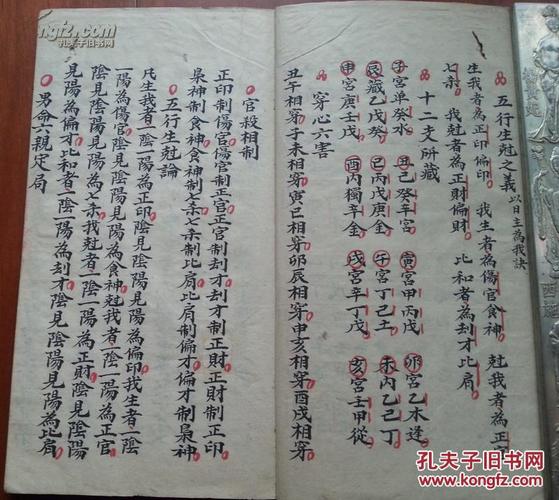 五行生尅之義 以日主為我訣
生我者為正印偏印 我生者為傷官食神 尅我者為正官
七杀 我尅者為正財偏財 比和者為刦才比肩
十二支所藏
子宮单癸水 丑己癸辛宮 寅宮甲丙戊 卯宮乙木逢
辰藏乙戊癸 巳丙戊庚金 午宮丁己土 未丙乙己丁
申宮庚壬戊 酉内獨辛金 戌宮辛丁戊 亥宮壬甲從
穿心六害
丑午相穿子未相穿寅巳相穿卯辰相穿申亥相穿酉戌相穿
官殺相制
正印制傷官傷官制正官正官制刦才刦才制正財正財制正印
梟神制食神食神制七杀七杀制比肩比肩制偏才偏才制梟神
五行生尅論
凡生我者一陰一陽為正印陰見陰陽見陽為偏印我生者一陰
一陽為傷官陰見陰陽見陽為食神尅我者一陰一陽為正官
陰見陰陽見陽為七杀我尅者一陰一陽為正財陰見陰陽
見陽為偏才比和者一陰一陽為刦才陰見陰陽見陽為比肩
男命六親定局
孔夫子旧书网
孔夫子旧书网
www.kongfz.com